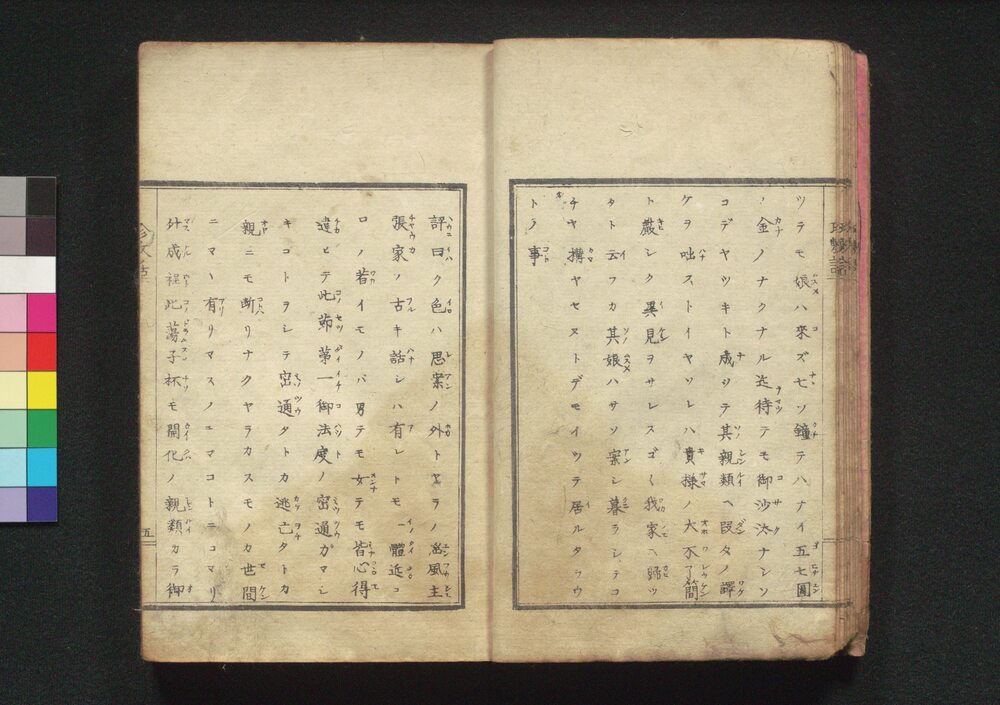 ツラモ娘ハ來ズ七ツ鐘テハナイ五七圓
ノ金ノナクナル迄待テモ御沙汰ナレソ
コデヤツキト成リテ其親類ヘ段タノ譯
ケヲ咄ストイヤソレハ貴様ノ大不了簡
ト嚴シク異見ヲサレスゴ〱我家ヘ歸ツ
タト云フカ其娘ハサソ案シ暮ラシテコ
チヤ搆ヤセヌトデモイツテ居ルタラウ
トノ事
評曰ク色ハ思案ノ外トヤラノ風主
張家ノ古キ話シハ有レトモ一體近コ
ロノ若イモノハ男テモ女テモ皆心得
違ヒテ此節第一御法度ノ密通ガマシ
キコトヲシテ密通タトカ逃亡タトカ
親ニモ断リナクヤラカスモノカ世間
ニマヽ有リマスノニマコトニコマリ
外成程此蕩子杯モ開化ノ親類カラ御
五